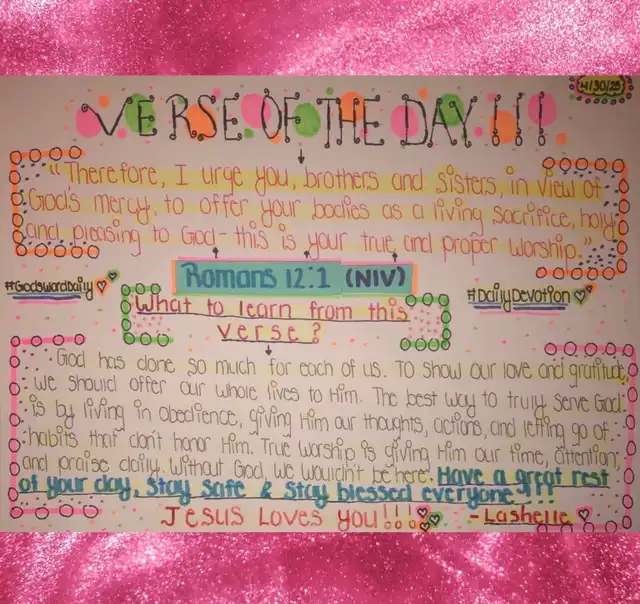 4/30/25
VERSE OF THE DAY !!!
"Therefore, I urge you, brothers and sisters, in view of
God's mercy, to offer your bodies as a living sacrifice, holy
and pleasing to God - this is your true, and proper worship."
Romans 12:1 (NIV)
#GodsWordDaily
#DailyDevotion
What to learn from this
verse?
God has done so much for each of us. To show our love and gratitude,
we should offer our whole lives to Him. The best way to truly serve God
is by living in obedience, giving Him our thoughts, actions, and letting go of
habits that don't honor Him. True worship is giving Him our time, attention,
and praise daily. Without God, we wouldn't be here. Have a great rest
of your day, stay safe & stay blessed everyone!!!
Jesus Loves you!!!
- Lashelle